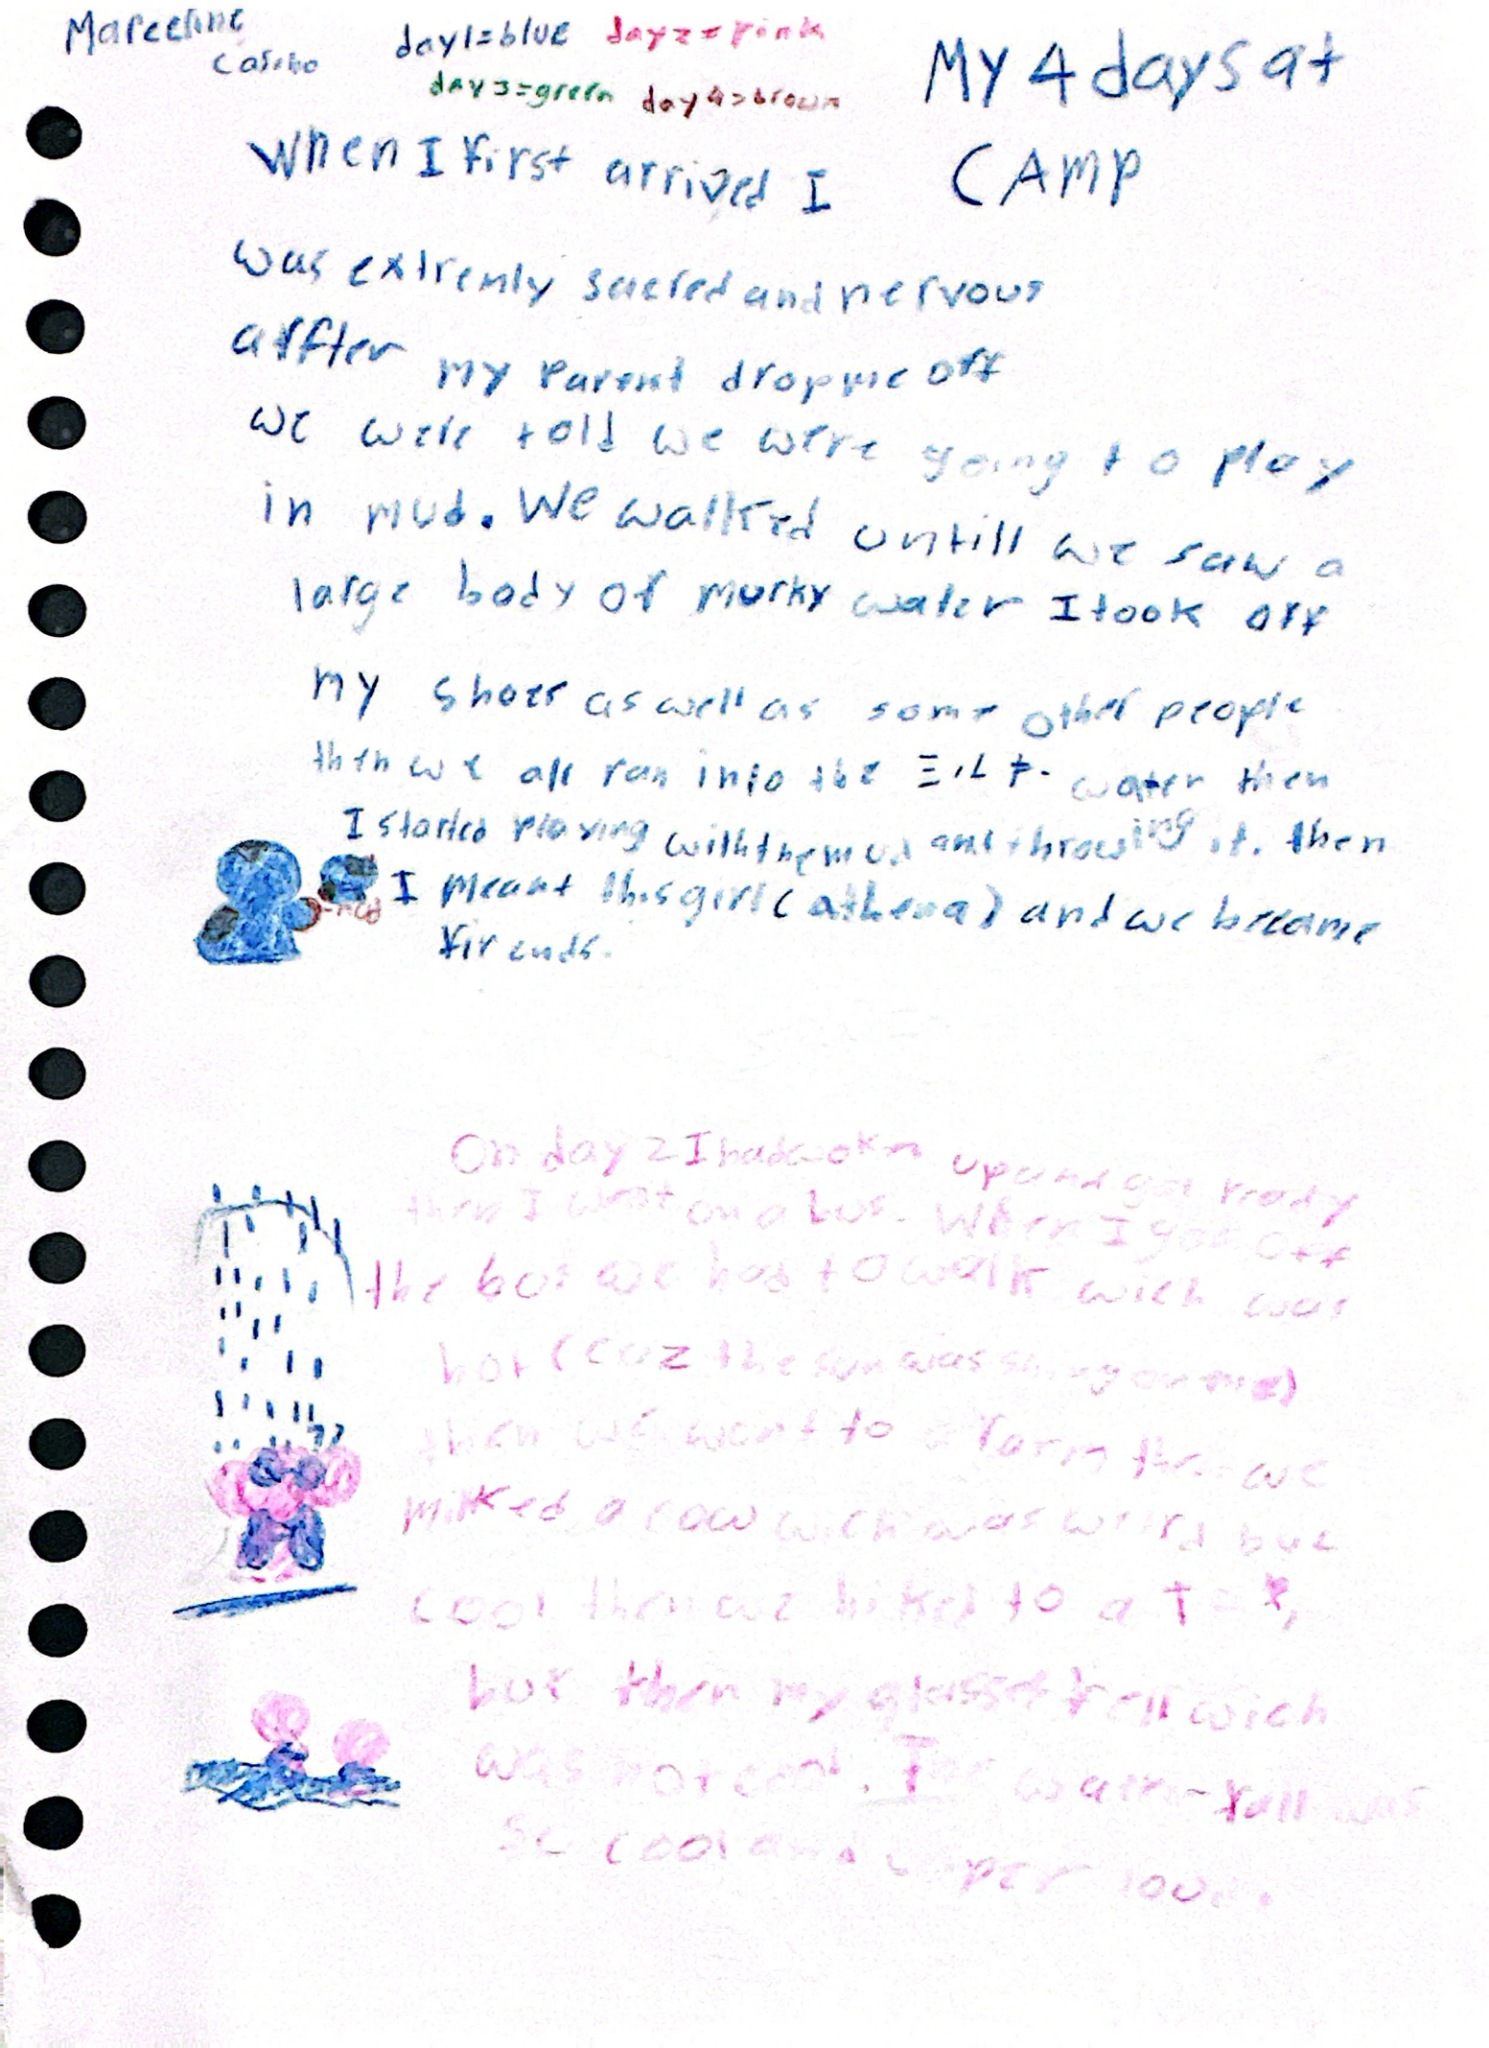 Marceline
day1=blue day2=pink
day3=green day4=brown
My 4 days at
CAMP
When I first arrived I
was extremly sacred and nervous
arffter my Parent drop me off
we were told we were going to play
in mud. We walked untill we saw a
large body of murky water I took off
my shoes as well as some other people
then we all ran into the water then
I started playing with the mud and throwing it. then
I meant this girl (athena) and we became
firends.
On day 2 I had wokn up and got ready
then I went on a bus. When I got off
the bus we had to walk wich was
hot (cuz the sun was shing on me)
then we went to a farm then we
milked a cow wich was weird but
cool then we hiked to a
but then my glasses fell wich
was not cool. The water-fall was
so cool and super loud.